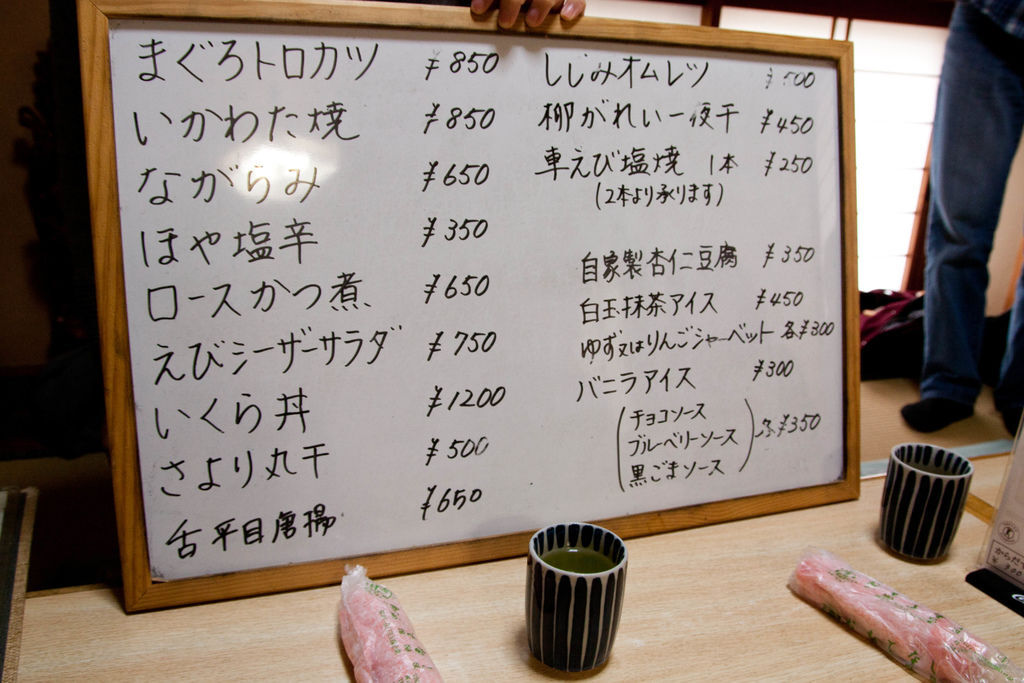 まぐろトロカツ ¥850
いかわた焼 ¥850
ながらみ ¥650
ほや塩辛 ¥350
ロースかつ煮 ¥650
えびシーザーサラダ ¥750
いくら丼 ¥1200
さより丸干 ¥500
舌平目唐揚 ¥650
しじみオムレツ ¥500
柳がれい一夜干 ¥450
車えび塩焼 1本 ¥250
(2本より承ります)
自家製杏仁豆腐 ¥350
白玉抹茶アイス ¥450
ゆず又はりんごシャーベット 各¥300
バニラアイス ¥300
(チョコソース
ブルーベリーソース
黒ごまソース) 各¥350